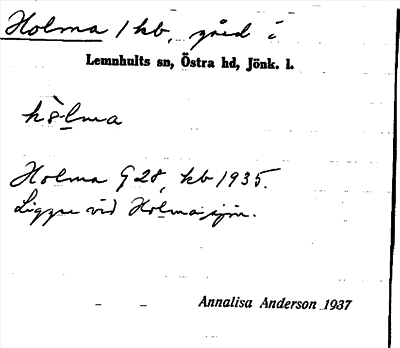 Holma 1 kb, gård i
Lemnhults sn, Östra hd, Jönk. l.
hòlma
Holma G28, kb 1935.
Ligger vid Holmasjön.
Annalisa Anderson 1937